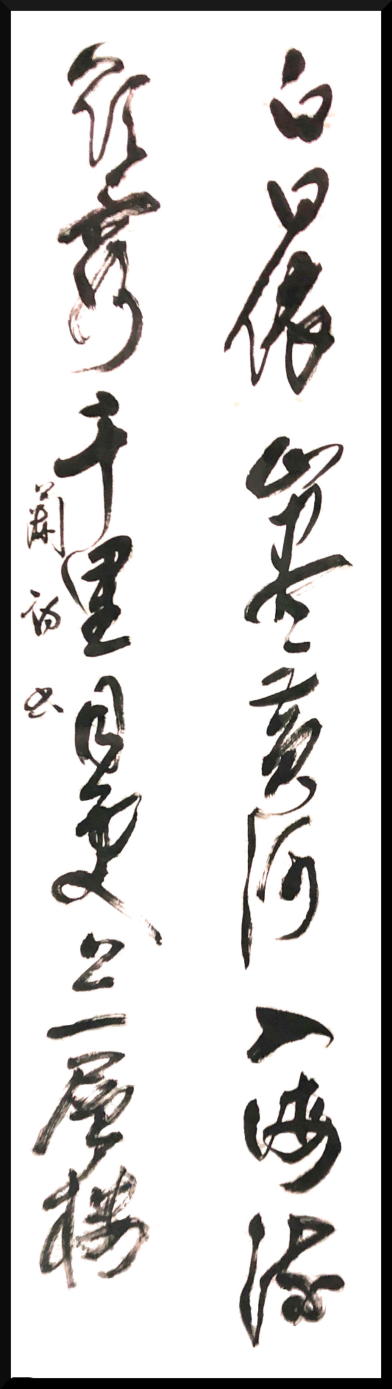 白日依山尽黄河入海流
欲穷千里目更上一层楼
兰
书